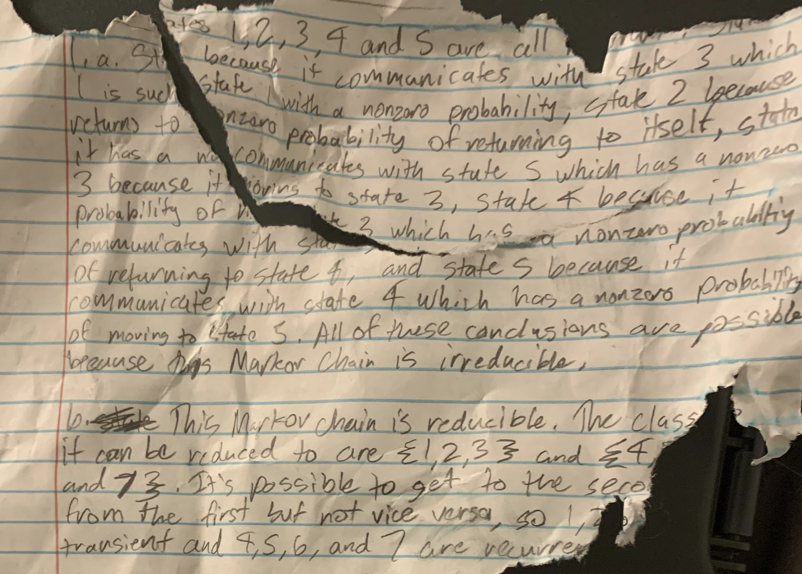 1, 2, 3, 4 and 5 are all
1. a. because it communicates with state 3 which
1 is such state 1 with a nonzero probability, state 2 because
returns to nonzero probability of returning to itself, state
it has a communicates with state 5 which has a nonzero
3 because it moving to state 3, state 4 because it
probability of state 3 which has a nonzero probability
communicates with
of returning to state 4, and state 5 because it
communicates with state 4 which has a nonzero probability
of moving to state 5. All of these conclusions are possible
because this Markov Chain is irreducible.
b. This Markov chain is reducible. The class
it can be reduced to are {1,2,3} and {4
and 7}. It's possible to get to the seco
from the first but not vice versa, so 1,
transient and 4,5,6, and 7 are recurren